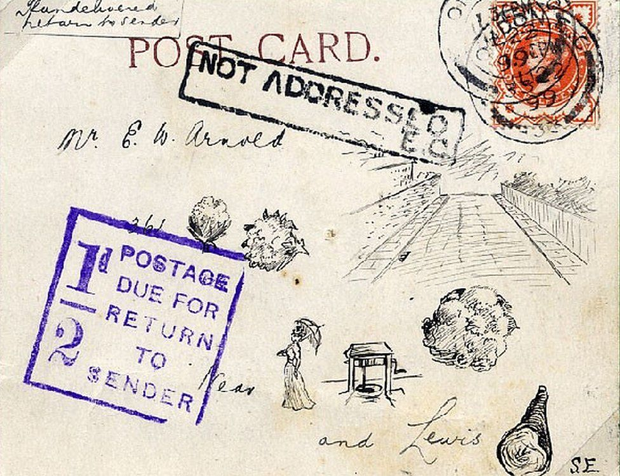 If undelivered
return to sender
POST CARD.
NOT ADDRESSED
E.C.
Mr E. W. Arnold
1d
2
POSTAGE
DUE FOR
RETURN
TO
SENDER
Near
and Lewis
S.E